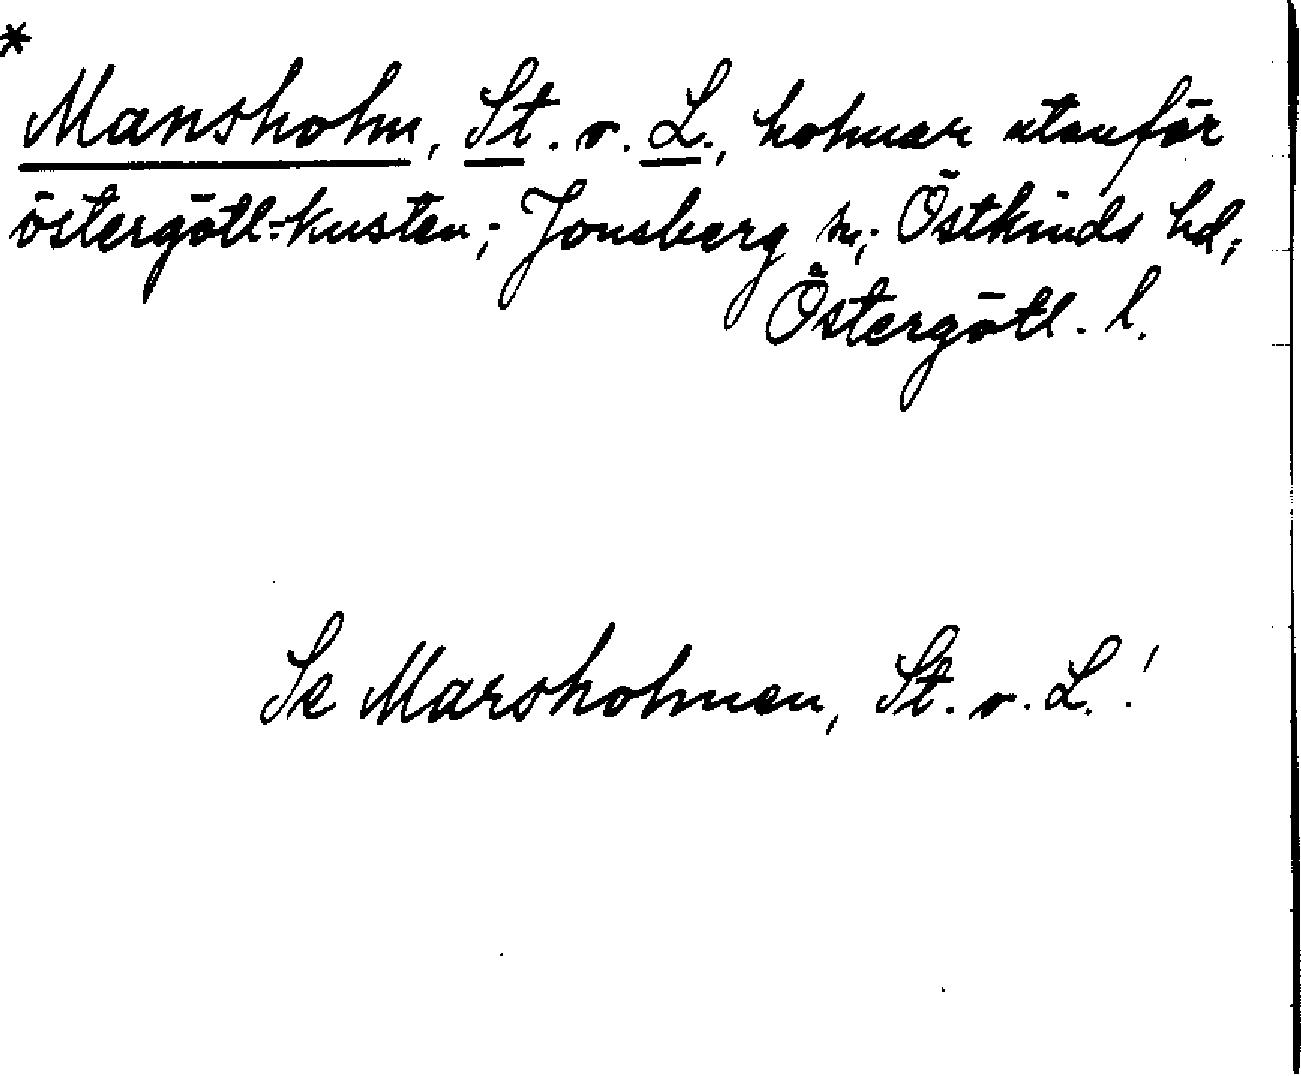 *
Mansholm, St. o. L., holmar utanför
östergötl.-kusten; Jonsberg sn; Östkinds hd;
Östergötl. l.
Se Marsholmen, St. o. L.!